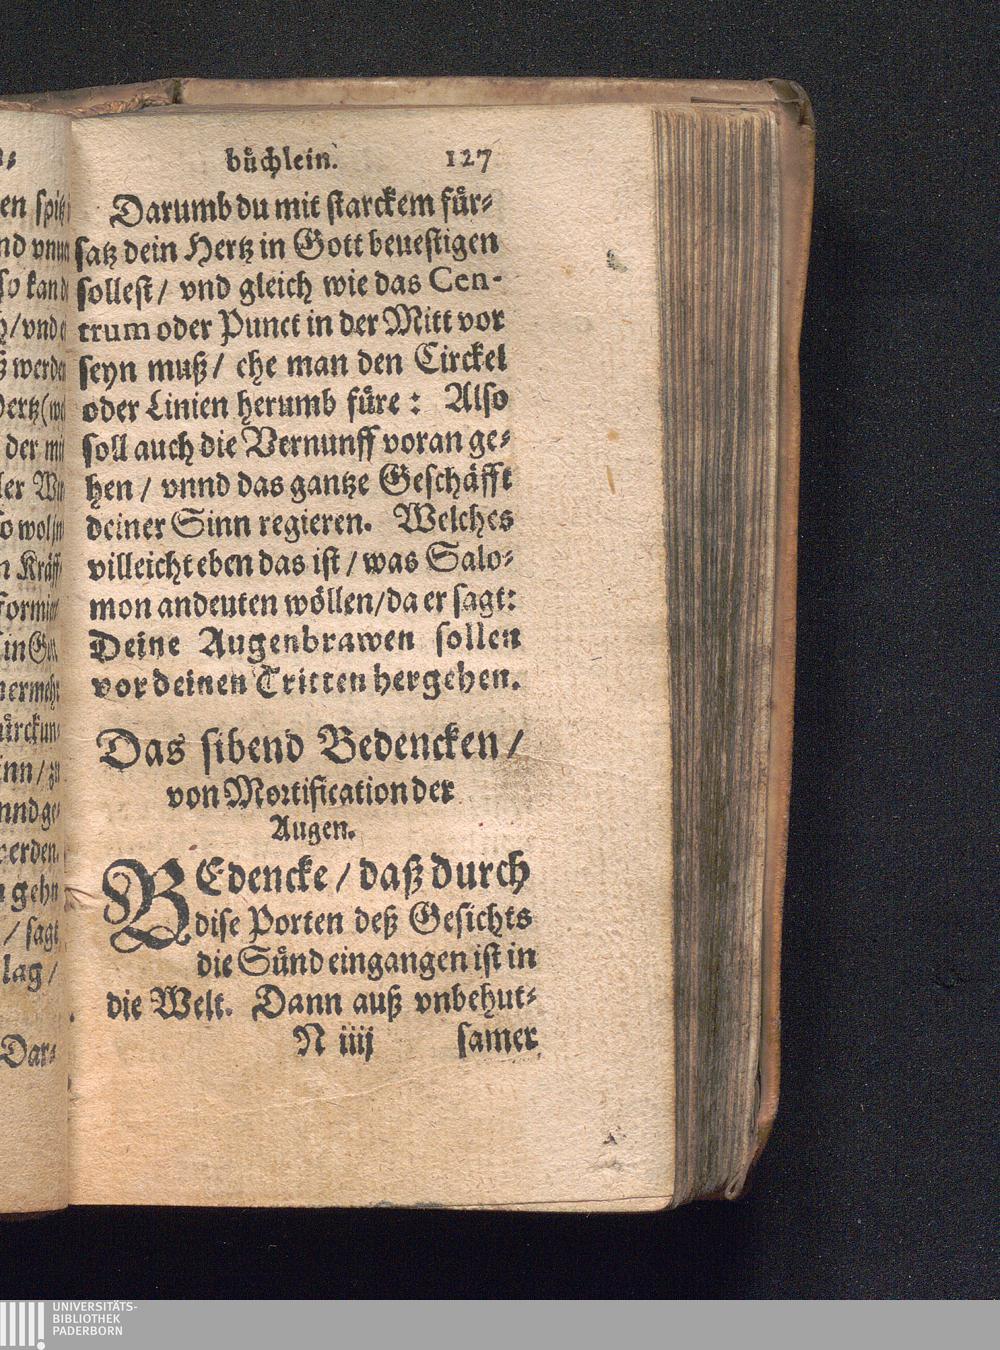 büchlein. 127
Darumb du mit starckem für-
satz dein Hertz in Gott beuestigen
sollest / vnd gleich wie das Cen-
trum oder Punct in der Mitt vor
seyn muß / ehe man den Circkel
oder Linien herumb füre : Also
soll auch die Vernunff voran ge-
hen / vnnd das gantze Geschäfft
deiner Sinn regieren. Welches
villeicht eben das ist / was Salo-
mon andeuten wöllen/da er sagt:
Deine Augenbrawen sollen
vor deinen Tritten hergehen.
Das sibend Bedencken /
von Mortification der
Augen.
BEdencke / daß durch
dise Porten deß Gesichts
die Sünd eingangen ist in
die Welt. Dann auß vnbehut-
N iiij samer
UNIVERSITÄTS-
BIBLIOTHEK
PADERBORN